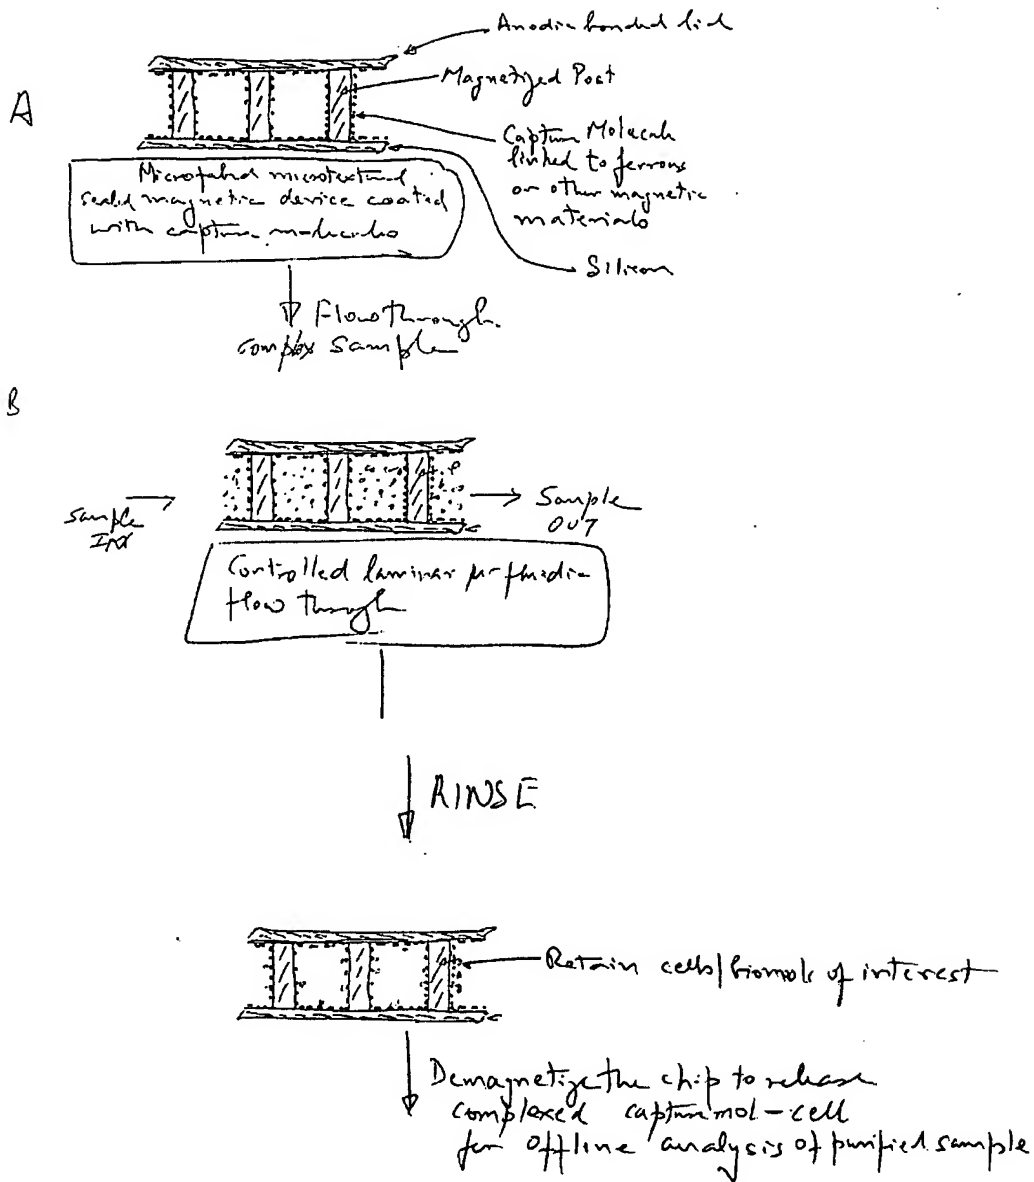 Anodic bonded lid
A
Magnetized Post
Capture Molecule
linked to ferrous
or other magnetic
materials
Microfabed microtextured
sealed magnetic device coated
with capture molecules
Silicon
Flow through
complex Sample
B
Sample
IN
Sample
OUT
Controlled laminar µ-fluidic
flow through
RINSE
Retain cells/biomols of interest
Demagnetize the chip to release
complexed capture mol-cell
for offline analysis of purified sample